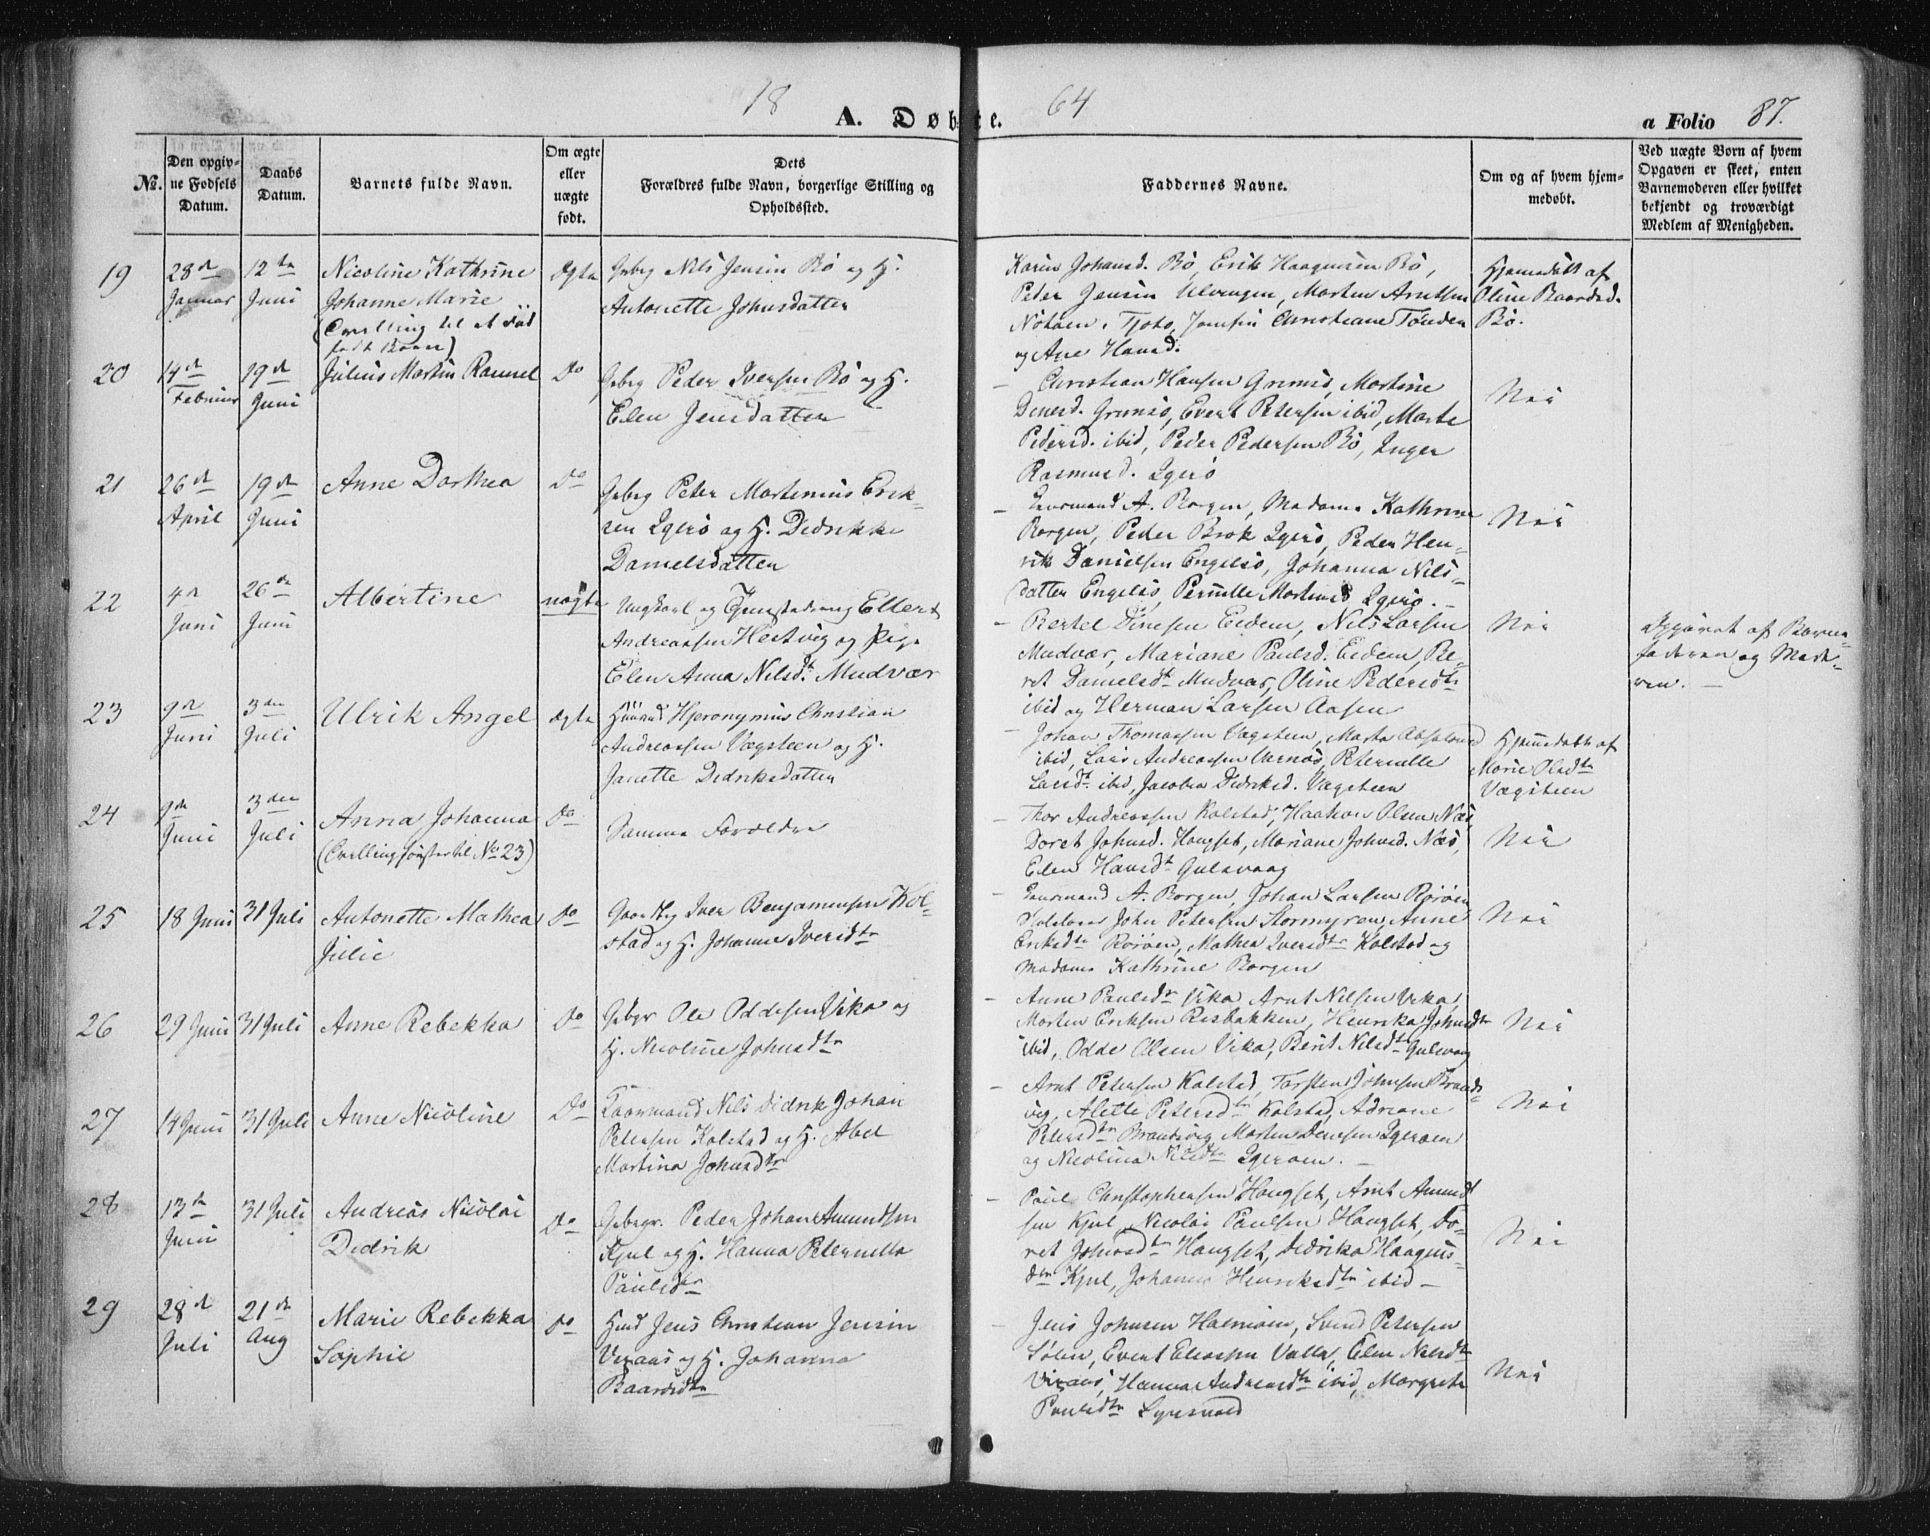 18 64
A. Døbte.
a Folio 87.
No.
Den opgivne Fødsels Datum.
Daabs Datum.
Barnets fulde Navn.
Om ægte eller uægte født.
Dets Forældres fulde Navn, borgerlige Stilling og Opholdssted.
Faddernes Navne.
Om og af hvem hjemmedøbt.
Ved uægte Børn af hvem Opgaven er skeet, enten Barnemoderen eller hvilket bekjendt og troværdigt Medlem af Menigheden.
19
28de Januar
12te Juni
Nicoline Kathrine
Johanne Marie
(Tvilling til et død
født Barn)
Ægte
Gbrg Nils Jensen Bø og H.
Antonette Johnsdatter
Karen Johansd. Bø, Erik Haagensen Bø,
Peder Jensen Ulvengen, Morten Arntsen
Christiane Tønder
og Ane Hansd.
Hjemmedøbt af
Oline Baardsd.
Bø.
20
14de Februar
19de Juni
Julius Martin
Do
Gbrg Peder Iversen Bø og H.
Elen Jensdatter
Christian Hansen Grimsø, Martine
Grimsø, Evert Petersen ibid, Marte
Pedersd. ibid, Peder Pedersen Bø, Inger
Rasmusd. Igerø
Nei
21
26de April
19de Juni
Anne Dorthea
Do
Gbrg Peter Martinius Erik-
sen Igerø og H. Didrikke
Danielsdatter
A. Borgen, Madame Kathrine
Borgen, Peder Brok Igerø, Peder Hen-
rik Danielsen Engelsø, Johanna Nils-
datter Engelsø, Pernille Martines Igerø.
Nei
22
4de Juni
26de Juni
Albertine
uægte
Ungkarl og Ellert
Andreassen Hertvig og Pige
Elen Anna Nilsdt. Mudvær
Bertel Dinesen Eidem, Nils Larsen
Mudvær, Mariane Paulsd. Eidem, Be-
ret Danielsdt. Mudvær, Oline Pedersdtr
ibid og Herman Larsen Aasen
Nei
Opgivet af Barne-
faderen og Mode-
ren.
23
9de Juni
3die Juli
Ulrik Angel
Ægte
Huusmd Hjeronymus Christian
Andreassen Vægsteen og H.
Janette Didriksdatter
Johan Thomassen Vægsteen, Marta Absalonsd
ibid, Lars Andreassen Pernille
Larsdt. ibid, Jacobia Didriksd. Vægsteen
Hjemmedøbt af
Marie Olsdtr
Vægsteen
24
9de Juni
3die Juli
Anna Johanna
(Tvillingsøster til No 23)
Do
Samme Forældre
Thor Andreassen Kolstad, Haakon Olsen Næs,
Doret Johnsd. Haugset, Mariane Johnsd. Næs,
Elen Hansdt. Gulsvaag
Nei
25
18 Juni
31 Juli
Antonette Mathea
Julie
Do
Gaardbrg Iver Benjaminsen Kol-
stad og H. Johanna Iversdtr
A. Borgen, Johan Larsen Rørøen
John Petersen Stormyren, Anne
Eriksdtr Rørøen, Mathea Iversdtr Kolstad og
Madame Kathrine Borgen
Nei
26
29 Juni
31 Juli
Anne Rebekka
Do
Gbgr Ole Oddesen Vika og
H. Nicoline Johnsdtr
Anne Paulsdtr Vika, Arnt Nilsen Vika,
Morten Eriksen Risbakken, Henrika Johnsdtr
ibid, Odde Olsen Vika, Berit Nilsdtr Gulsvaag
Nei
27
14 Juni
31 Juli
Anne Nicoline
Do
Nils Didrik Johan
Petersen Kolstad og H. Abel
Martina Johnsdtr
Arnt Petersen Kolstad, Torsten Johnsen Brands-
vig, Alette Petersdtr Kolstad, Adriane
Petersdtr Brandsvig, Morten Igerøen
og Nicolina Nilsdtr Igerøen.
Nei
28
13te Juni
31 Juli
Andreas Nicolai
Didrik
Do
Gbrgr. Peder Johan Amundsen
Kjul og H. Hanna Peternella
Paulsdtr
Paul Christophersen Haugset, Arnt Amund
sen Kjul, Nicolai Paulsen Haugset, Do-
ret Johnsdtr Haugset, Didrika Haagens-
dtr Kjul, Johanna Henriksdtr ibid
Nei
29
28de Juli
21de Aug
Marie Rebekka
Sophie
Do
Husmd Jens Christian Jensen
Viraas og H. Johanna
Baardsdtr
Jens Johnsen Svend Petersen
Evert Eliassen Valla, Elen Nilsdtr
Viraas, Hanna Andreasdtr ibid, Margrete
Paulsdtr
Nei